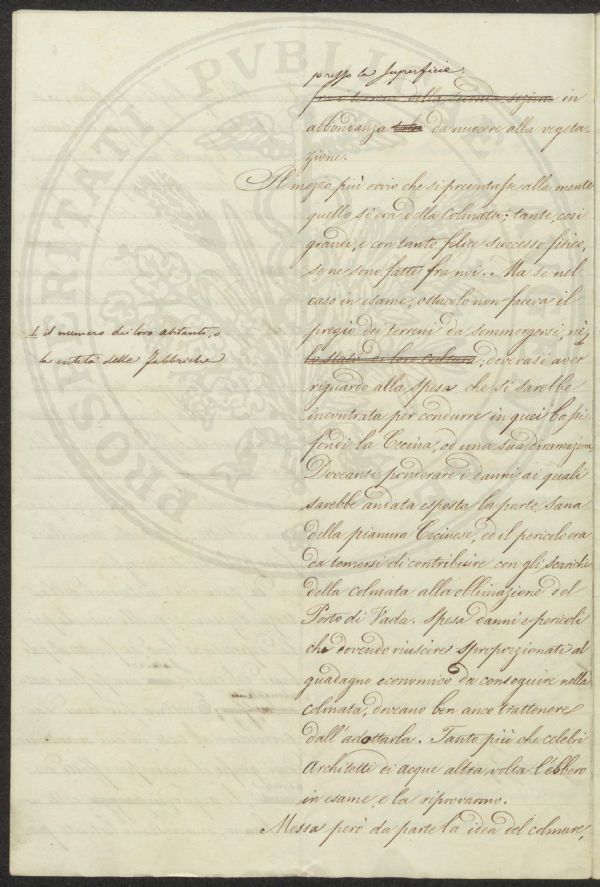 presso la superficie,
fra i terreni della seconda sezione in
abbondanza tale da nuocere alla vegeta-
zione.
Il mezzo più ovvio che si presentasse alla mente
quello si era della Colmata; tante, così
grandi, e con tanto felice successo fisico,
se ne sono fatte fra noi. Ma se nel
caso in esame, ostacolo non faceva il
pregio dei terreni da sommergersi, nè
1 il numero dei loro abitanti, o
la entità delle fabbriche
lo stato di loro coltura; dovevasi aver
riguardo alla spesa che si sarebbe
incontrata per condurre in quei bassi
fondi la Cecina, od una sua diramazione.
Doveansi ponderare i danni ai quali
sarebbe andata esposta la parte sana
della pianura Cecinese, ed il pericolo era
da temersi di contribuire con gli scarichi
della colmata alla oblimazione del
Porto di Vada. Spesa danni e pericoli
che dovendo riuscire sproporzionati al
guadagno economico da conseguire nella
colmata, doveano ben anco trattenere
dall'adottarla. Tanto più che celebri
Architetti di acque altra volta l'ebbero
in esame, e la riprovarono.
Messa però da parte la idea del colmare,
PROSPERITATI PVBLICAE